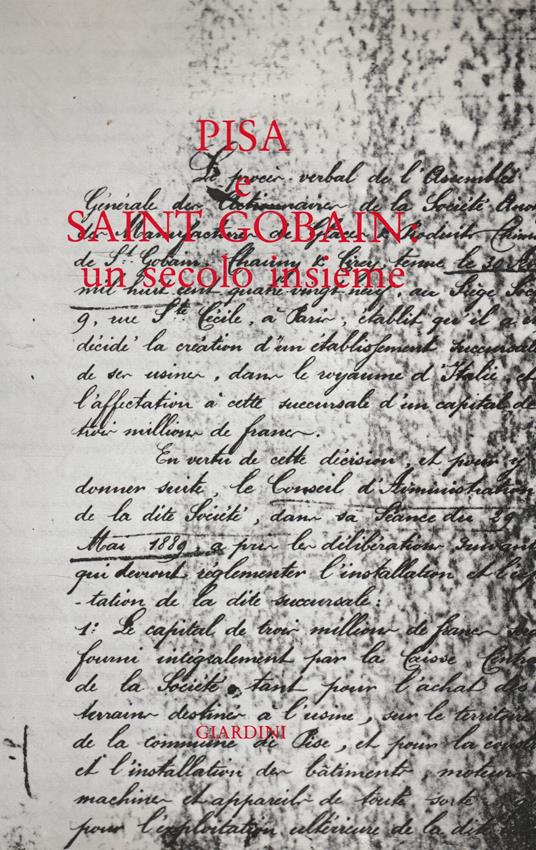 PISA
e
SAINT GOBAIN:
un secolo insieme
Le procès verbal de l'Assemblée
Générale des Actionnaires de la Société
de Manufactures de Glaces & Produits
de St. Gobain, Chauny & Cirey, tenue le 30
mil huit cent quatre vingt neuf, au Siège
9, rue Ste Cécile, à Paris, établit qu'il a
décidé la création d'un établissement
de ses usines, dans le royaume d'Italie, et
l'affectation à cette succursale d'un capital de
trois millions de francs.
En vertu de cette décision, et pour y
donner suite, le Conseil d'Administration
de la dite Société, dans sa Séance du 29
Mai 1889, a pris les délibérations
qui devront réglementer l'installation et
-tation de la dite succursale:
1° Le capital de trois millions de francs
fourni intégralement par la Caisse
de la Société, tant pour l'achat des
terrains destinés à l'usine, sur le territoire
GIARDINI
de la commune de Pise, et pour la
et l'installation des bâtiments, moteurs
machines et appareils de toute sorte
pour l'exploitation ultérieure de la dite